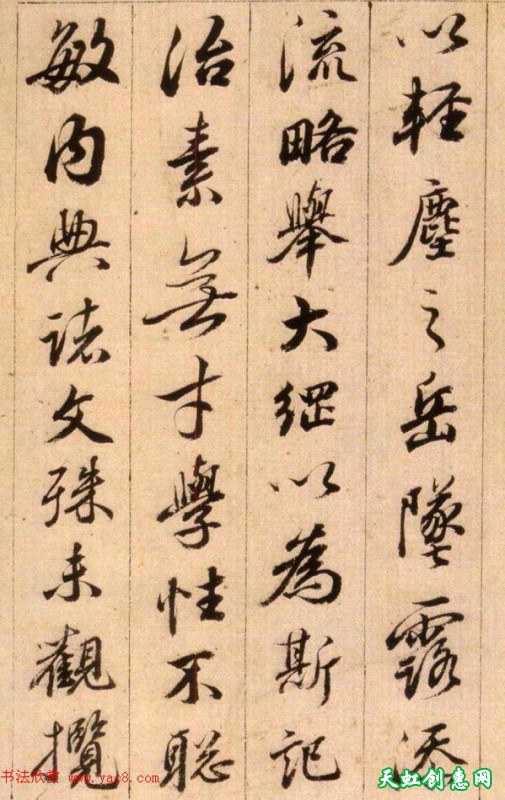 以輕塵之岳墜露添
流略舉大綱以為斯記
治素無才學性不聪
敏内典諸文殊未觀攬
书法欣赏 www.yac8.com
天虹创惠网